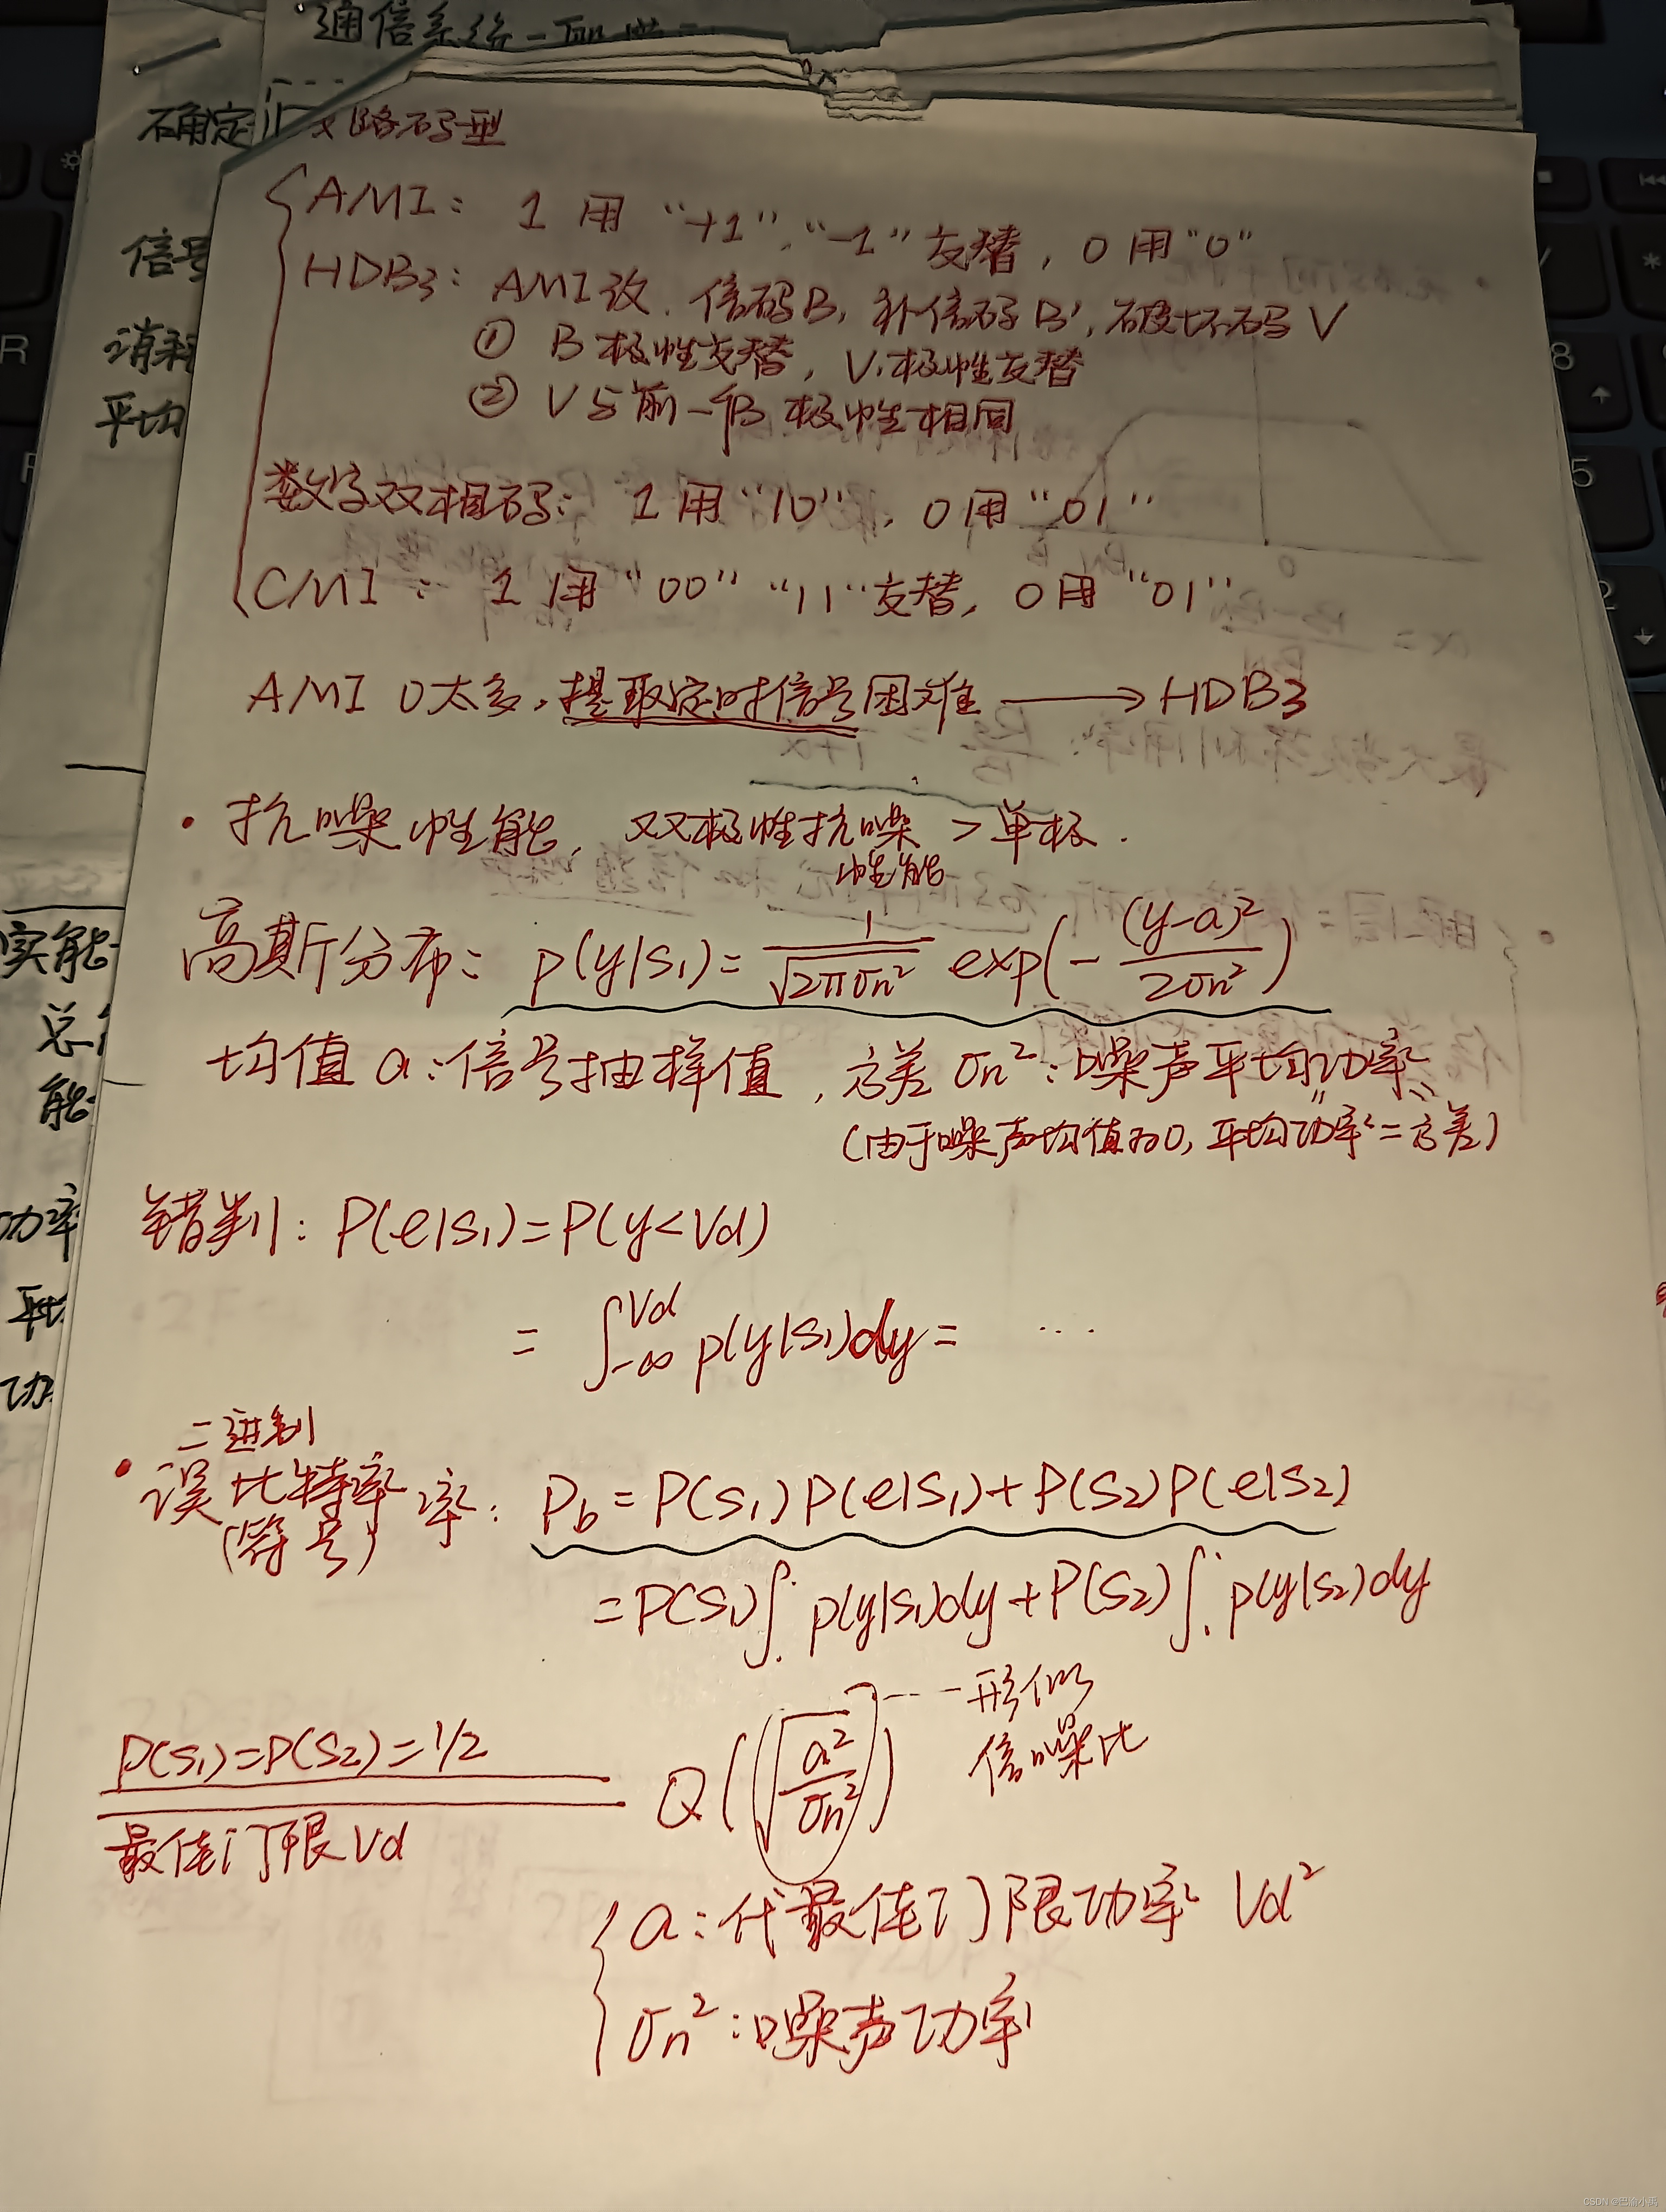 通信系统一
确定
信号
消耗
平均
实能
总
能
功率
平均
功
路码型
AMI: 1 用 "+1"、"-1" 交替, 0 用 "0"
HDB3: AMI改. 信码B, 补信码B', 破坏码V
① B 极性交替, V 极性交替
② V与前一B 极性相同
数字双相码: 1 用 "10", 0 用 "01"
CMI: 1 用 "00" "11" 交替, 0 用 "01"
AMI 0太多, 提取定时信号困难 → HDB3
• 抗噪性能, 双极性抗噪 > 单极.
性能
高斯分布: p(y|s₁)= 1/√(2πσn²) exp(-(y-a)²/2σn²)
均值 a: 信号抽样值, 方差 σn²: 噪声平均功率
(由于噪声均值为0, 平均功率=方差)
错判: P(e|s₁)=P(y<Vd)
= ∫_{-∞}^{Vd} p(y|s₁)dy = ...
二进制
• 误比特率率: Pb = P(s₁)P(e|s₁)+P(s₂)P(e|s₂)
(符号)
=P(s₁)∫ p(y|s₁)dy+P(s₂)∫ p(y|s₂)dy
P(s₁)=P(s₂)=1/2
最佳门限Vd
Q(√(a²/σn²)) --- 形似
信噪比
a: 代最佳门限功率 Vd²
σn²: 噪声功率
CSDN